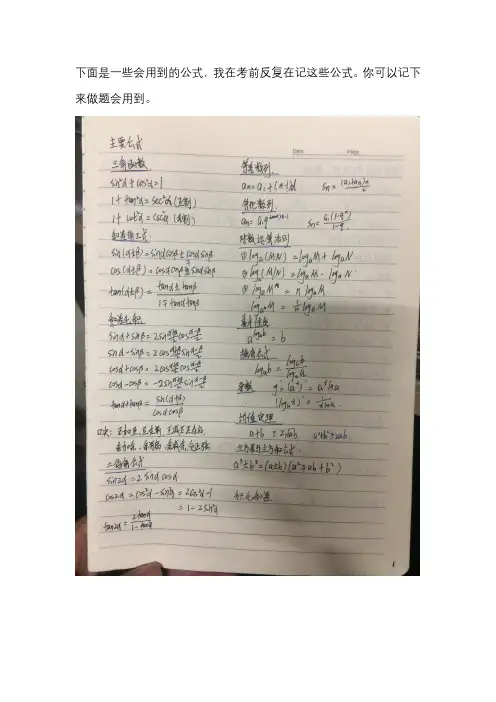 下面是一些会用到的公式，我在考前反复在记这些公式。你可以记下
来做题会用到。
Date Page
主要公式
三角函数
sin²α+cos²α=1
1+tan²α=sec²α (正割)
1+cot²α=csc²α (余割)
和差角公式
sin(α±β)=sinαcosβ±cosαsinβ
cos(α±β)=cosαcosβ∓sinαsinβ
tan(α±β)=(tanα±tanβ)/(1∓tanαtanβ)
和差化积
sinα+sinβ=2sin(α+β)/2 cos(α-β)/2
sinα-sinβ=2cos(α+β)/2 sin(α-β)/2
cosα+cosβ=2cos(α+β)/2 cos(α-β)/2
cosα-cosβ=-2sin(α+β)/2 sin(α-β)/2
tanα+tanβ=sin(α+β)/(cosαcosβ)
口决：正加正,正在前,
二倍角公式
sin2α=2sinαcosα
cos2α=cos²α-sin²α=2cos²α-1
=1-2sin²α
tan2α=2tanα/(1-tan²α)
等差数列
an=a₁+(n-1)d Sn=(a₁+an)n/2
等比数列
Sn=a₁(1-qⁿ)/(1-q)
对数运算法则
① logₐ(MN)=logₐM+logₐN
② logₐ(M/N)=logₐM-logₐN
③ logₐMⁿ=n logₐM
基本性质
a^(logₐb)=b
换底公式
logₐb=log꜀b/log꜀a
导数 y=(aˣ)'=aˣlna
(logₐx)'=1/(xlna)
均值定理
a+b≥2√ab a²+b²≥2ab
立方差与立方和公式
a³±b³=(a±b)(a²∓ab+b²)
积化和差
1